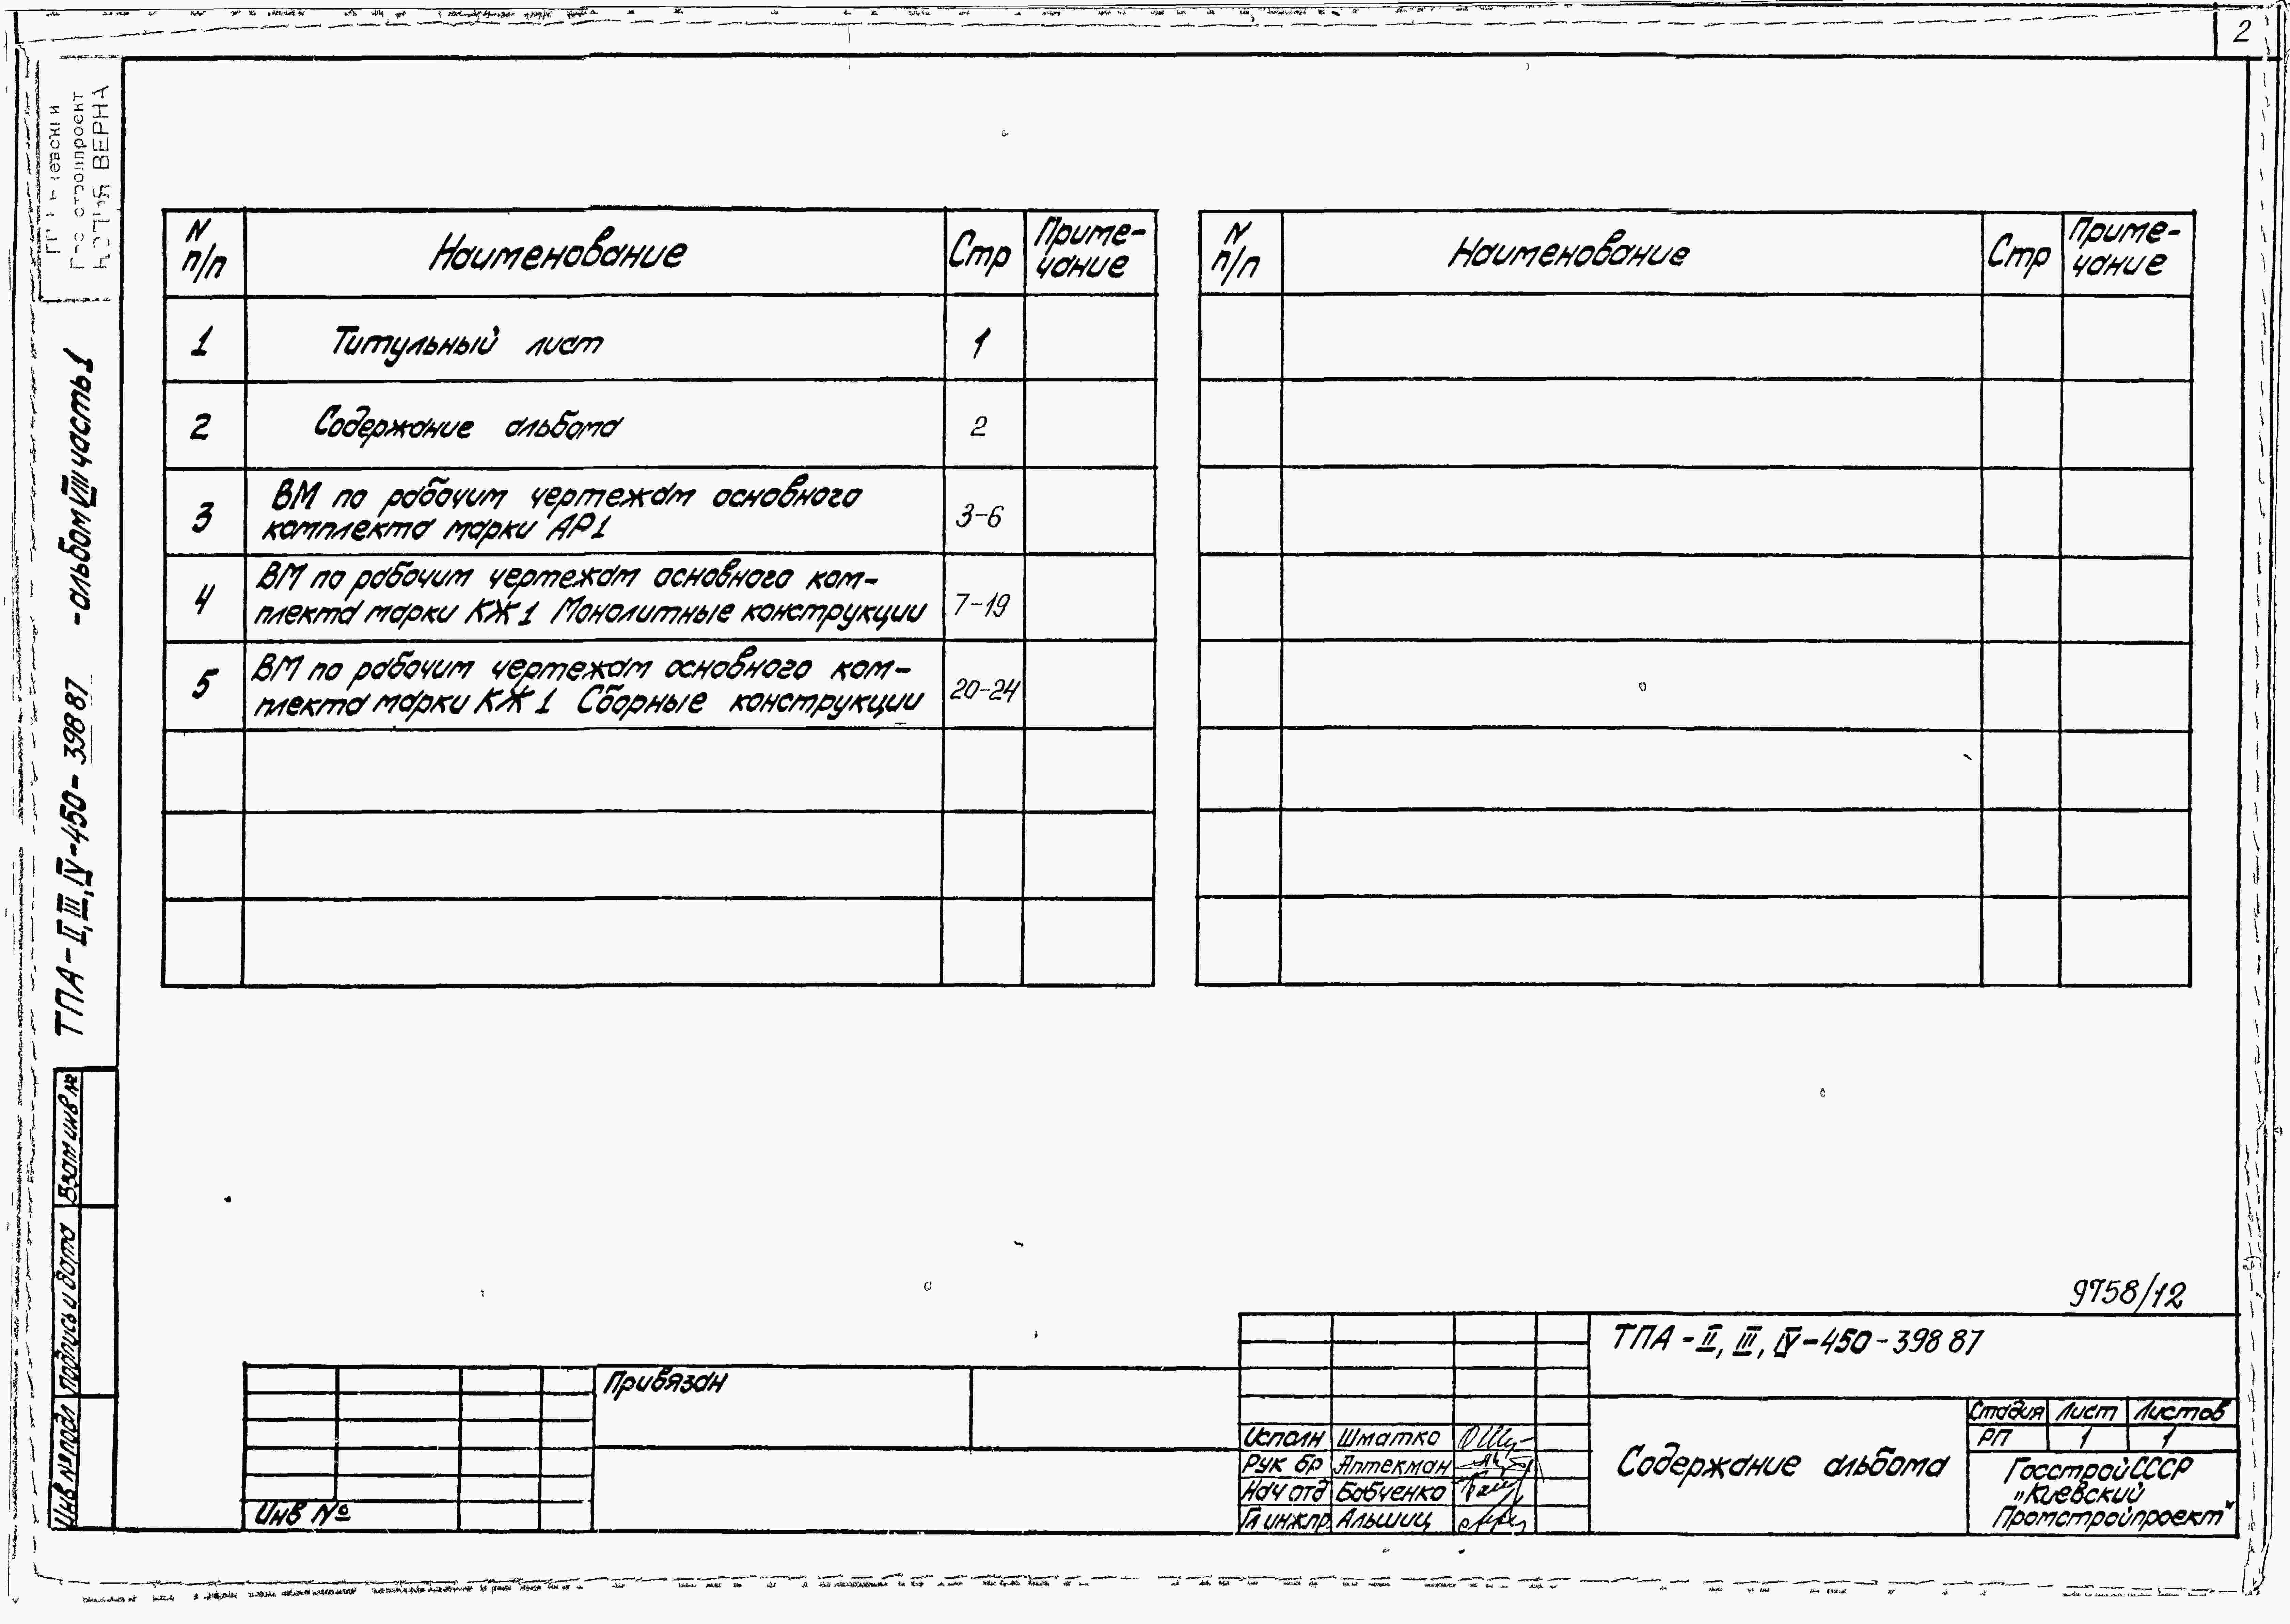 2
КОПИЯ ВЕРНА
ТПА-II, III, IV-450-398 87 -альбом VIII часть 1
N п/п Наименование Стр Приме-
чание
1 Титульный лист 1
2 Содержание альбома 2
3 ВМ по рабочим чертежам основного
комплекта марки АР1 3-6
4 ВМ по рабочим чертежам основного ком-
плекта марки КЖ1 Монолитные конструкции 7-19
5 ВМ по рабочим чертежам основного ком-
плекта марки КЖ1 Сборные конструкции 20-24
N п/п Наименование Стр Приме-
чание
Взам инв №
Подпись и дата
Инв № подл
9758/12
Привязан
Инв №
ТПА-II, III, IV-450-398 87
Исполн Шматко
Рук бр Аптекман
Нач отд Бабченко
Гл инж пр. Альшиц
Содержание альбома
Стадия Лист Листов
РП 1 1
Госстрой СССР
"Киевский
Промстройпроект"